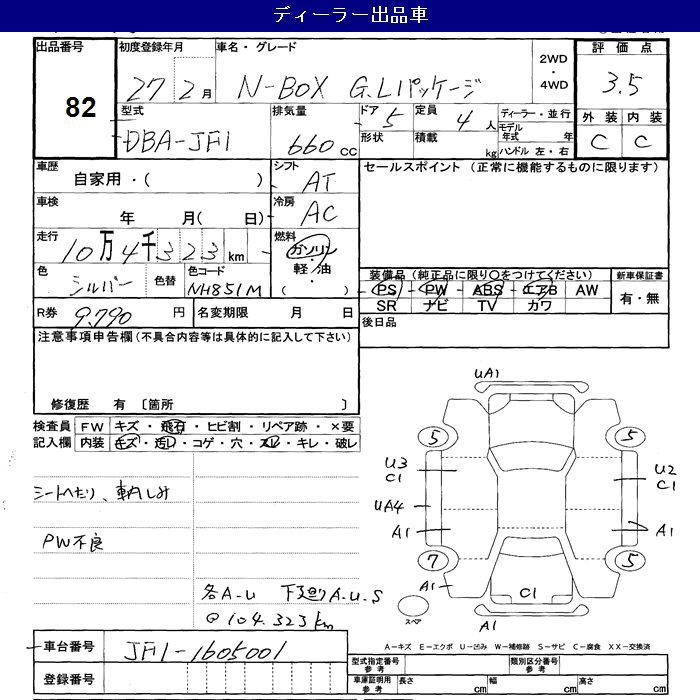 ディーラー出品車
出品番号 82
初度登録年月 27 2月
車名・グレード N-BOX G.Lパッケージ
2WD・4WD
評価点 3.5
外装 内装
C C
型式 DBA-JF1
排気量 660cc
ドア 5
形状
定員 4人
積載 kg
ディーラー・並行
モデル年式 年
ハンドル 左・右
車歴 自家用・( )
シフト AT
セールスポイント (正常に機能するものに限ります)
車検 年 月( 日)
冷房 AC
走行 10万4千323km
燃料 ガソリン・軽油・( )
色 シルバー 色替
色コード NH851M
装備品(純正品に限り○をつけてください)
PS PW ABS エアB AW
SR ナビ TV カワ
新車保証書 有・無
R券 9,790円
名変期限 月 日
後日品
注意事項申告欄(不具合内容等は具体的に記入して下さい)
修復歴 有 〔箇所 〕
検査員記入欄
FW キズ・飛石・ヒビ割・リペア跡・×要
内装 キズ・汚レ・コゲ・穴・スレ・キレ・破レ
シートへたり、車内しみ
PW不良
各A-U 下廻りA.U.S
@104.323km
UA1
5 5
U3 C1
U2 C1
UA4
A1 A1
7 5
A1
C1
スペア
A1
A-キズ E-エクボ U-凹み W-補修跡 S-サビ C-腐食 XX-交換済
車台番号 JF1-1605001
登録番号
型式指定番号 参考
類別区分番号 参考
車庫証明用 参考
長さ cm 幅 cm 高さ cm